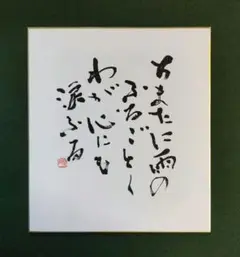 ちまたに雨の
ふるごとく
わが心にも
涙ふる